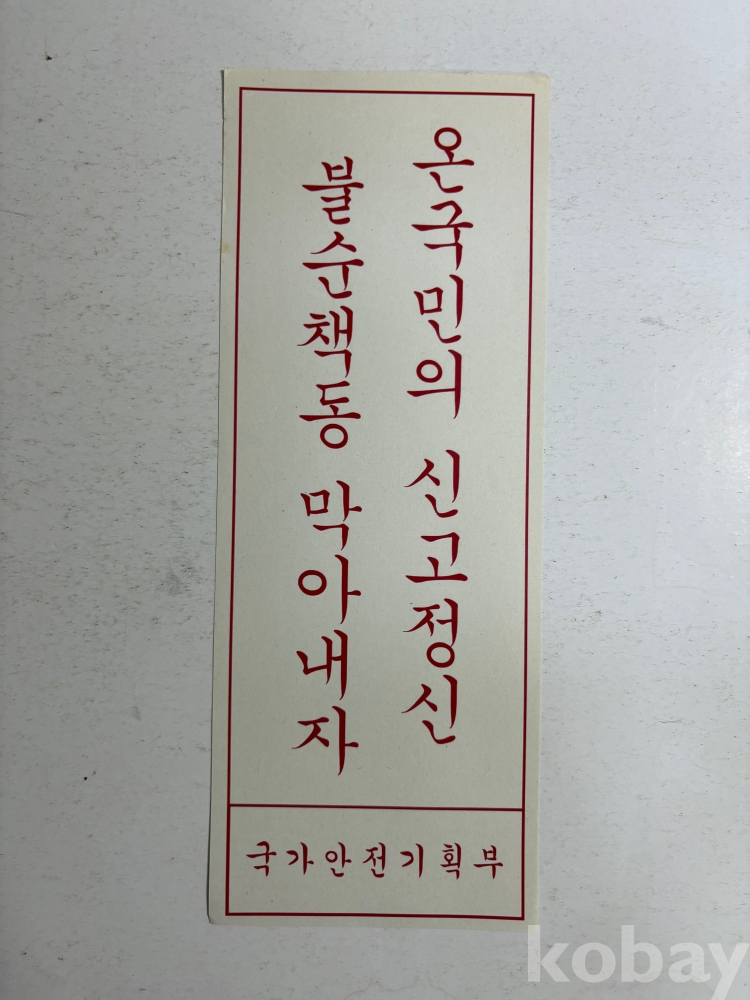 온국민의 신고정신
불순책동 막아내자
국가안전기획부
kobay